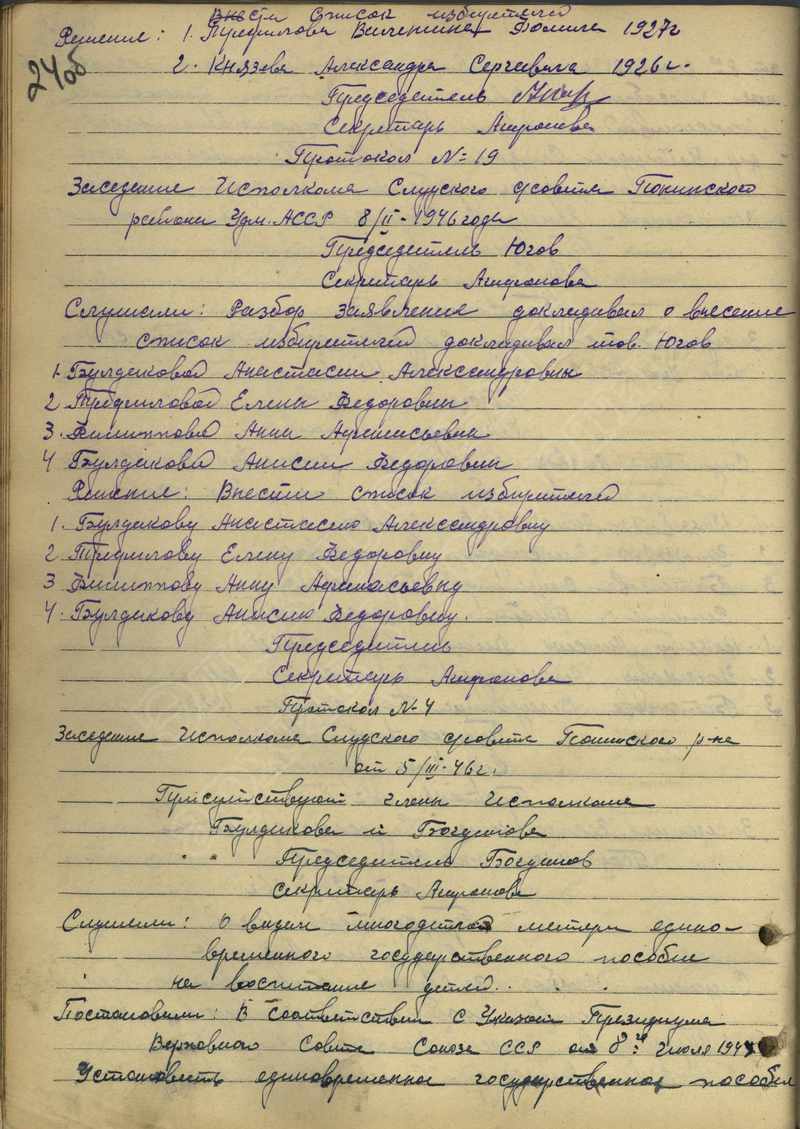 Внести список избирателей
24об
Решение: 1. Трефилова Валентина 1927г
2. Князева Александра Сергеевича 1926г.
Председатель
Секретарь Агафонова
Протокол № 19
Заседание Исполкома Слудского с/совета Понинского
района Удм. АССР 8/II-1946 года
Председатель Югов
Секретарь Агафонова
Слушали: Разбор заявление докладывал о внесение
список избирателей докладывал тов. Югов
1. Булдаковой Анастасии Александровны
2 Трефиловой Елены Федоровны
3. Филипповой Анны Афанасьевны
4 Булдаковой Анисии Федоровны
Решение: Внести список избирателей
1. Булдакову Анастасию Александровну
2 Трефилову Елену Федоровну
3 Филиппову Анну Афанасьевну
4. Булдакову Анисию Федоровну.
Председатель
Секретарь Агафонова
Протокол № 4
Заседание Исполкома Слудского с/совета Понинского р-на
от 5/III-46г.
Присутствуют члены Исполкома
Булдакова и Богданова
Председатель Богданов
Секретарь Агафонова
Слушали: О выдаче многодетной матери едино-
временного государственного пособие
на воспитание детей.
Постановили: В соответствии с Указом Президиума
Верховного Совета Союза ССР от 8го Июля 1944
Установить единовременное государственное пособие